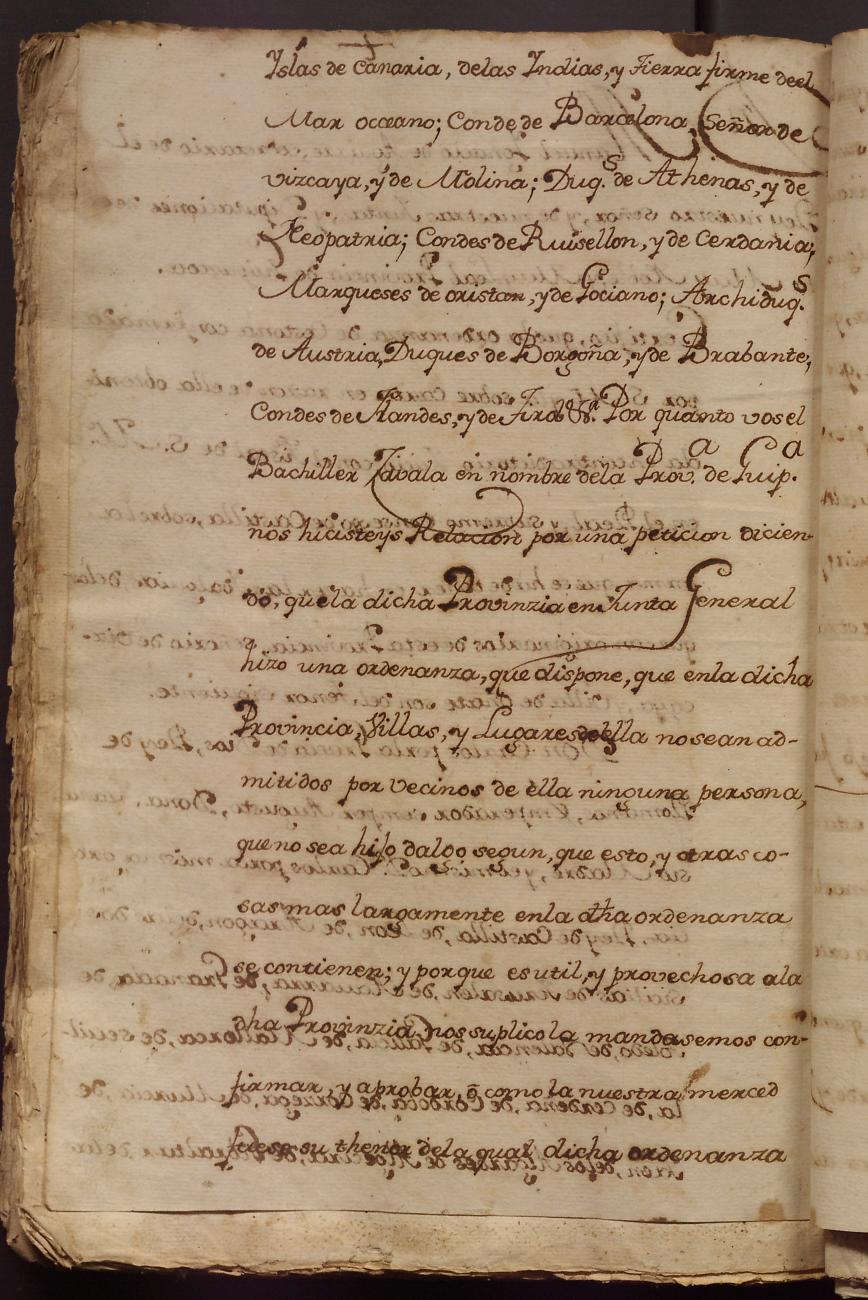 Yslas de Canaria, delas Yndias, y Tierra firme deel
Mar occeano; Conde de Barcelona, Señor de
vizcaya, y de Molina; Duq.s de Athenas, y de
Neopatria; Condes de Ruisellon, y de Cerdania;
Marqueses de oristan, y de Gociano; Archiduq.s
de Austria, Duques de Borgoña, y de Brabante,
Condes de Flandes, y de Tirol &.a Por quanto vos el
Bachiller Zavala en nombre dela Prov.a de Guip.a
nos hicisteys Relacion por una peticion dicien-
do, que la dicha Provinzia en Junta General
hizo una ordenanza, que dispone, que enla dicha
Provincia, Villas, y Lugares de ella no sean ad-
mitidos por vecinos de ella ninguna persona,
que no sea hijo dalgo segun, que esto, y otras co-
sas mas largamente enla dha ordenanza
se contienen; y porque es util, y provechosa ala
dha Provinzia, nos suplico la mandasemos con-
firmar, y aprobar, ò como la nuestra merced
fuese su thenor dela qual dicha ordenanza